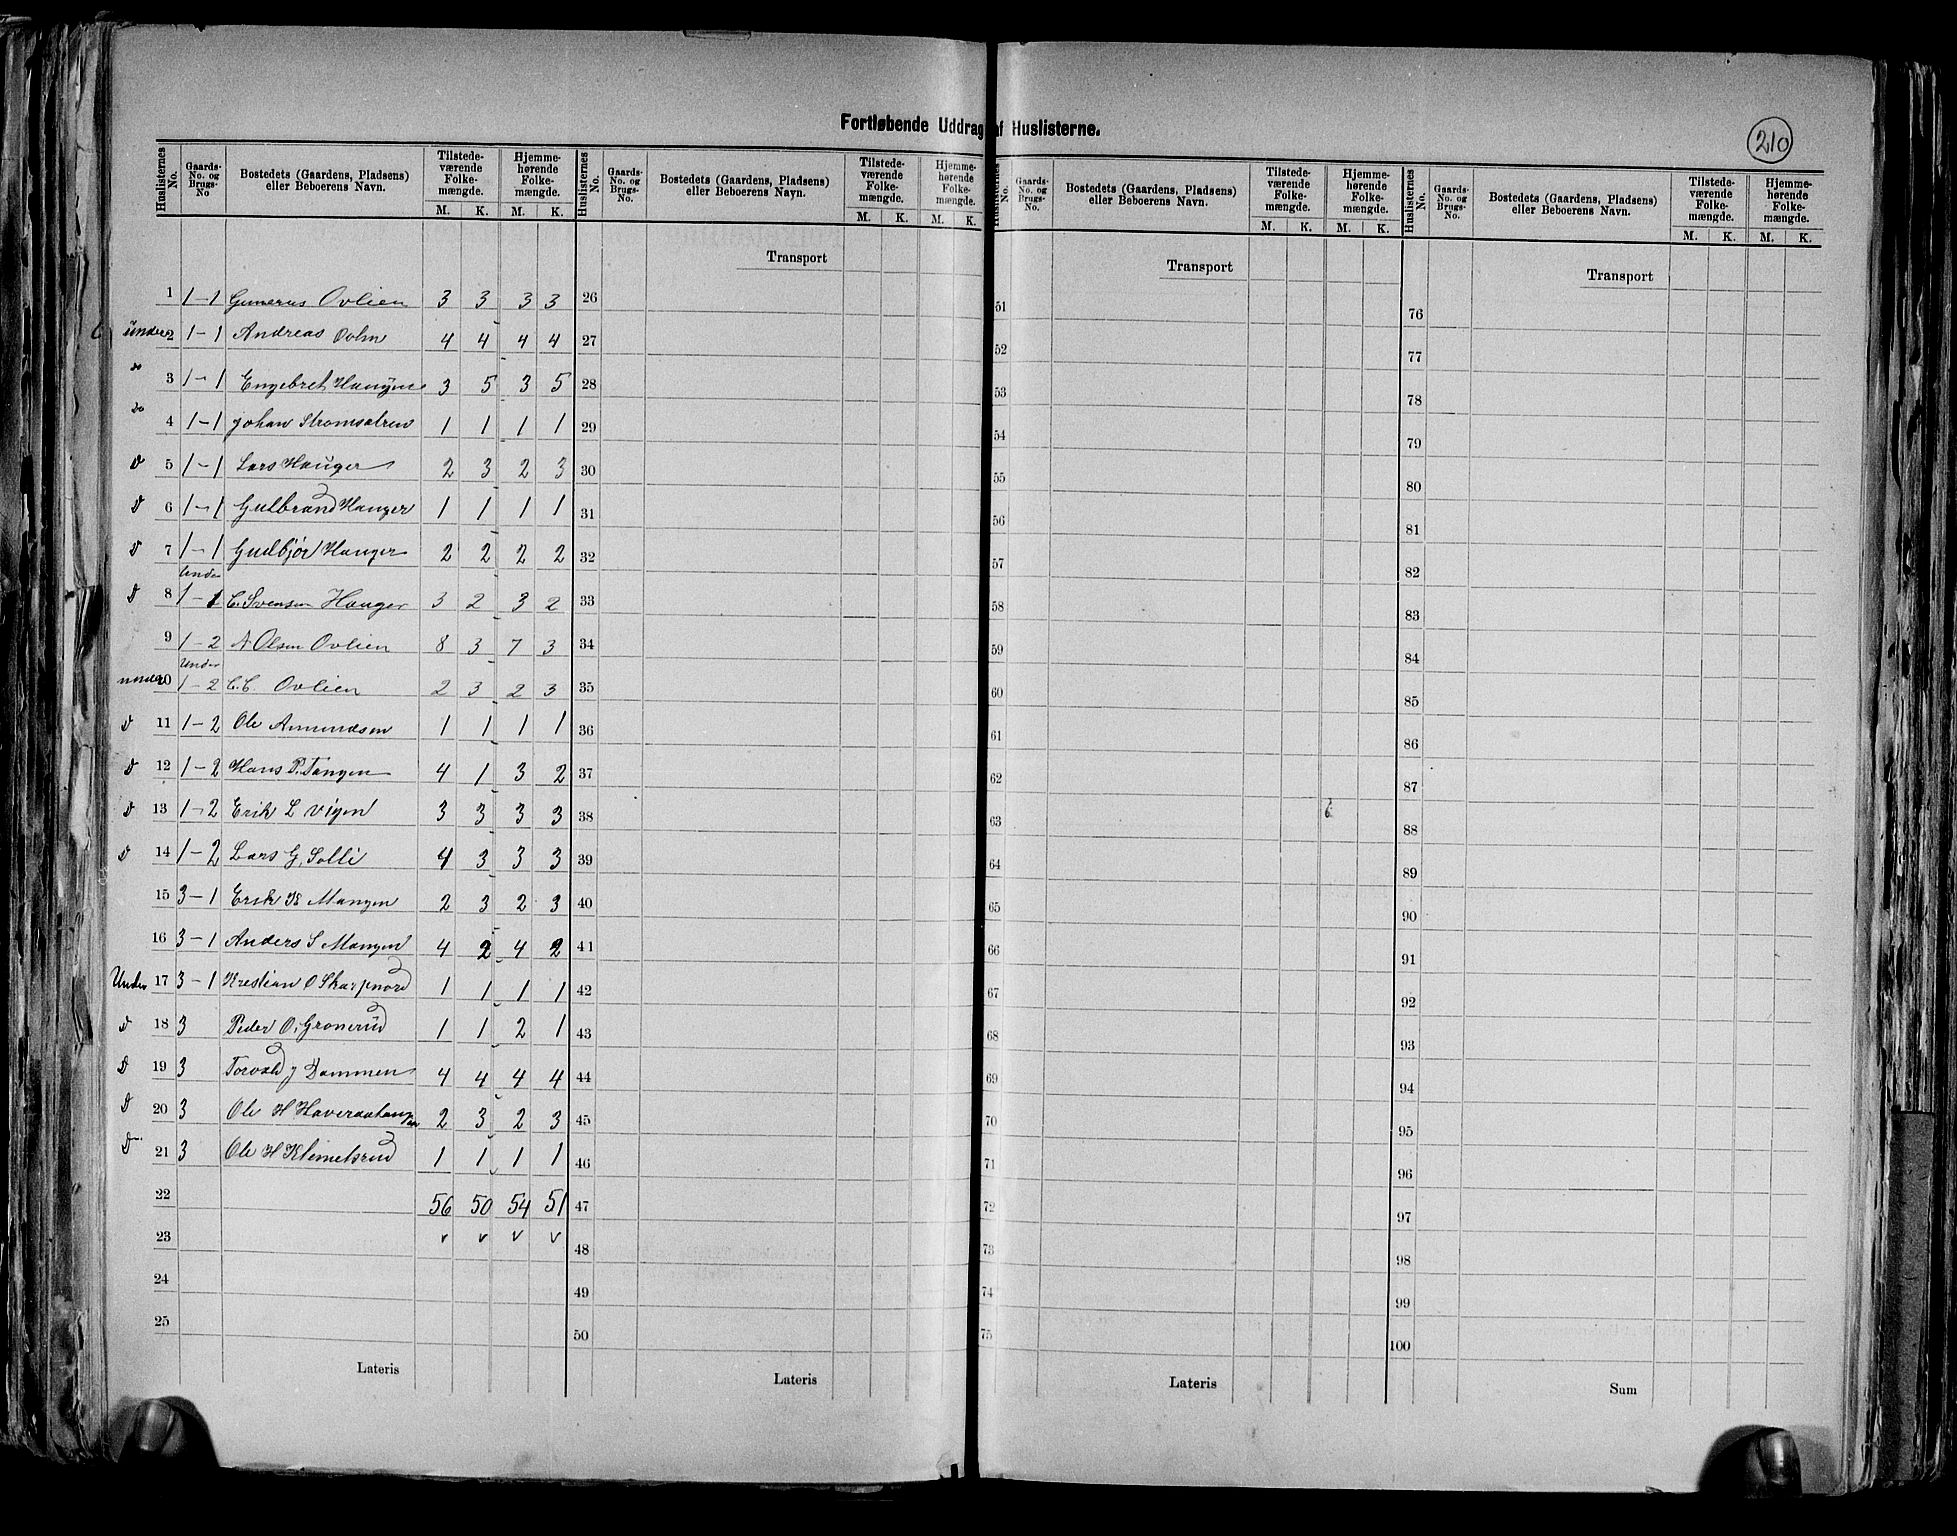 Fortløbende Uddrag af Huslisterne.
210
Huslisternes No. Gaards-No. og Brugs-No Bostedets (Gaardens, Pladsens) eller Beboerens Navn. Tilstedeværende Folkemængde. M. K. Hjemmehørende Folkemængde. M. K.
Huslisternes No. Gaards-No. og Brugs-No. Bostedets (Gaardens, Pladsens) eller Beboerens Navn. Tilstedeværende Folkemængde. M. K. Hjemmehørende Folkemængde. M. K.
Huslisternes No. Gaards-No. og Brugs-No Bostedets (Gaardens, Pladsens) eller Beboerens Navn. Tilstedeværende Folkemængde. M. K. Hjemmehørende Folkemængde. M. K.
Huslisternes No. Gaards-No. og Brugs-No. Bostedets (Gaardens, Pladsens) eller Beboerens Navn. Tilstedeværende Folkemængde. M. K. Hjemmehørende Folkemængde. M. K.
Transport Transport Transport
1 1-1 Gunerius Ovlien 3 3 3 3 26 51 76
under 2 1-1 Andreas Ovlien 4 4 4 4 27 52 77
do 3 1-1 Engebret Haugen 3 5 3 5 28 53 78
do 4 1-1 Johan Stromsætren 1 1 1 1 29 54 79
d 5 1-1 Lars Hauger 2 3 2 3 30 55 80
d 6 1-1 Gulbrand Hauger 1 1 1 1 31 56 81
d 7 1-1 Gudbjør Hauger 2 2 2 2 32 57 82
Under
d 8 1-1 C. Svensen Hauger 3 2 3 2 33 58 83
9 1-2 A Olsen Ovlien 8 3 7 3 34 59 84
Under
under 10 1-2 C. C. Ovlien 2 3 2 3 35 60 85
d 11 1-2 Ole Amundsen 1 1 1 1 36 61 86
d 12 1-2 Hans P. Tangen 4 1 3 2 37 62 87
d 13 1-2 Erik L Vigen 3 3 3 3 38 63 88
d 14 1-2 Lars G. Solli 4 3 3 3 39 64 89
15 3-1 Erik K Mangen 2 3 2 3 40 65 90
16 3-1 Anders S Mangen 4 2 4 2 41 66 91
Under 17 3-1 Kristian O Skarpnord 1 1 1 1 42 67 92
d 18 3 Peder O. Gronerud 1 1 2 1 43 68 93
d 19 3 Torvald J Dammen 4 4 4 4 44 69 94
d 20 3 Ole H Haveraatangen 2 3 2 3 45 70 95
d 21 3 Ole H Klemetsrud 1 1 1 1 46 71 96
22 56 50 54 51 47 72 97
23 v v v v 48 73 98
24 49 74 99
25 50 75 100
Lateris Lateris Lateris Sum